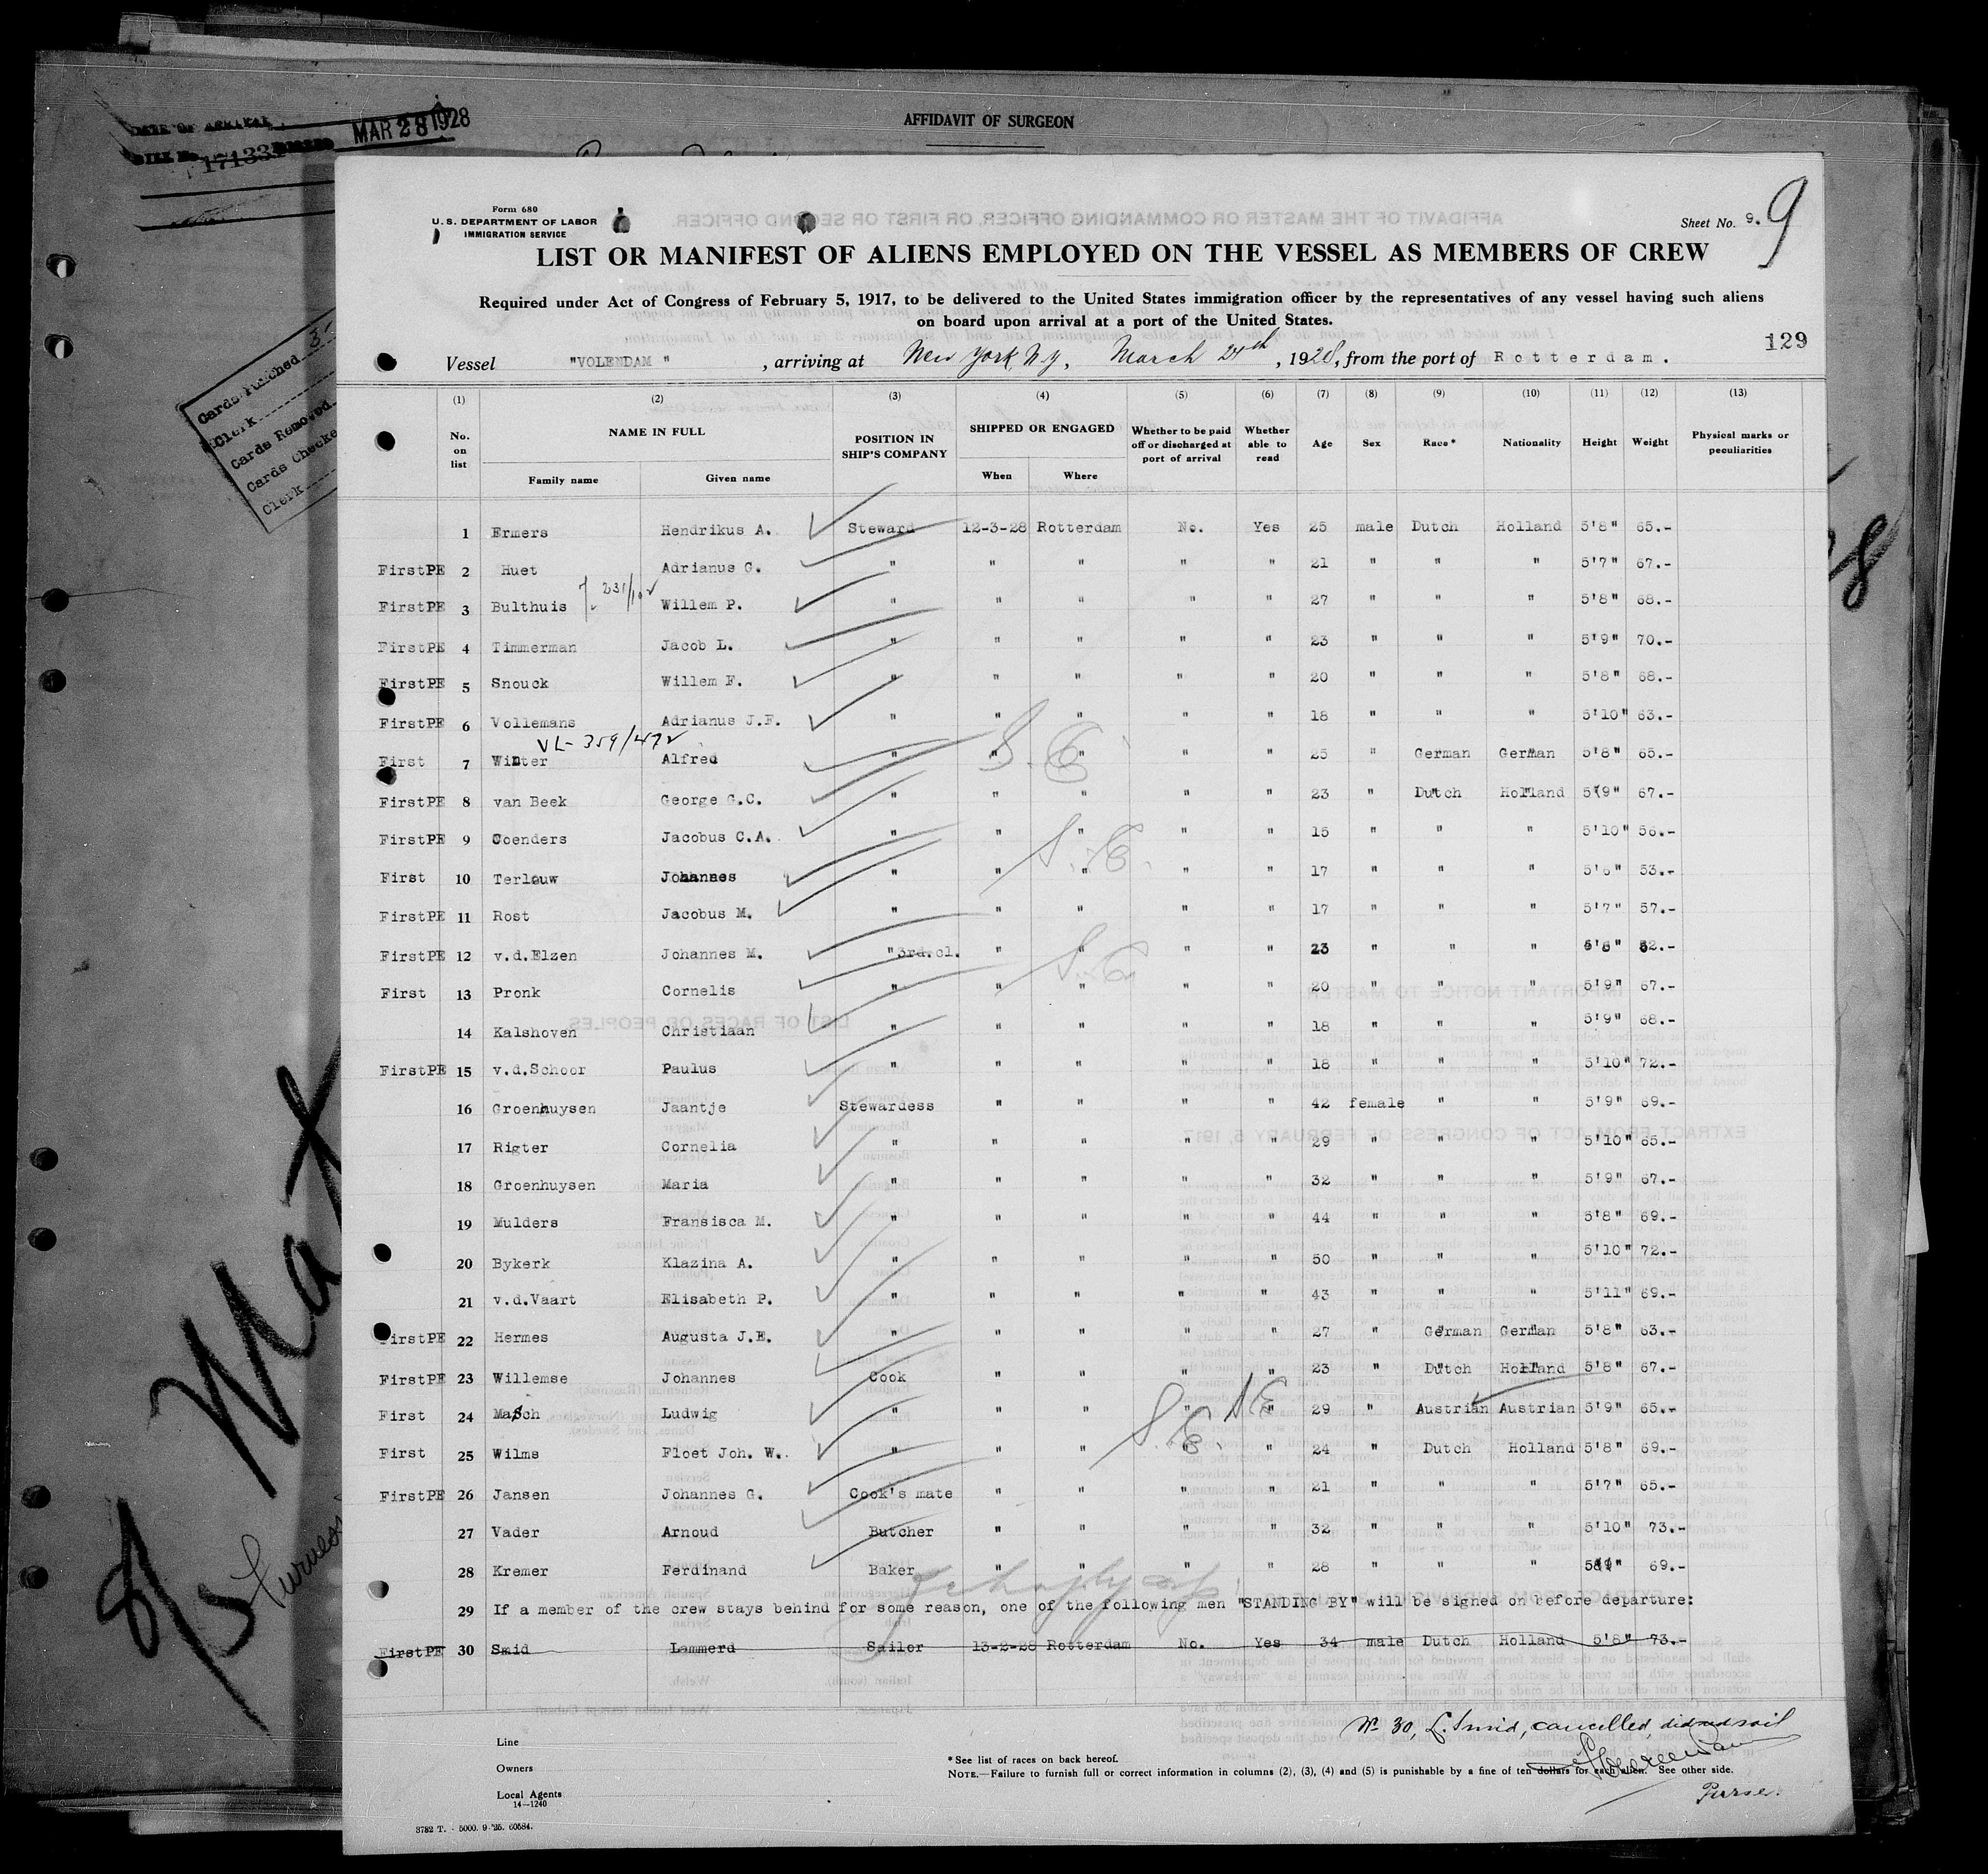 DATE OF ARRIVAL
MAR 28 1928
17133
AFFIDAVIT OF SURGEON
Cards Punched
Clerk
Cards Removed
Cards Checke
Clerk
Form 680
U. S. DEPARTMENT OF LABOR
IMMIGRATION SERVICE
Sheet No. 9. 9
LIST OR MANIFEST OF ALIENS EMPLOYED ON THE VESSEL AS MEMBERS OF CREW
Required under Act of Congress of February 5, 1917, to be delivered to the United States immigration officer by the representatives of any vessel having such aliens
on board upon arrival at a port of the United States.
129
Vessel "VOLENDAM ", arriving at New York, N.Y., March 24th, 1928, from the port of Rotterdam.
(1) (2) (3) (4) (5) (6) (7) (8) (9) (10) (11) (12) (13)
No. on list NAME IN FULL POSITION IN SHIP'S COMPANY SHIPPED OR ENGAGED Whether to be paid off or discharged at port of arrival Whether able to read Age Sex Race* Nationality Height Weight Physical marks or peculiarities
Family name Given name When Where
1 Ermers Hendrikus A. Steward 12-3-28 Rotterdam No. Yes 25 male Dutch Holland 5'8" 65.-
FirstPE 2 Huet Adrianus G. " " " " " 21 " " " 5'7" 67.-
FirstPE 3 Bulthuis Willem P. " " " " " 27 " " " 5'8" 68.-
FirstPE 4 Timmerman Jacob L. " " " " " 23 " " " 5'9" 70.-
FirstPE 5 Snouck Willem F. " " " " " 20 " " " 5'8" 68.-
FirstPE 6 Vollemans Adrianus J.F. " " " " " 18 " " " 5'10" 63.-
VL-359/472
First 7 Winter Alfred " " " " " 25 " German German 5'8" 65.-
FirstPE 8 van Beek George G.C. " " " " " 23 " Dutch Holland 5'9" 67.-
FirstPE 9 Coenders Jacobus C.A. " " " " " 15 " " " 5'10" 56.-
First 10 Terlouw Johannes " " " " " 17 " " " 5'6" 53.-
FirstPE 11 Rost Jacobus M. " " " " " 17 " " " 5'7" 57.-
FirstPE 12 v.d.Elzen Johannes M. "3rd.cl. " " " " 23 " " " 5'8" 62.-
First 13 Pronk Cornelis " " " " " 20 " " " 5'9" 67.-
14 Kalshoven Christiaan " " " " " 18 " " " 5'9" 68.-
FirstPE 15 v.d.Schoor Paulus " " " " " 18 " " " 5'10" 72.-
16 Groenhuysen Jaantje Stewardess " " " " 42 female " " 5'9" 69.-
17 Rigter Cornelia " " " " " 29 " " " 5'10" 65.-
18 Groenhuysen Maria " " " " " 32 " " " 5'9" 67.-
19 Mulders Fransisca M. " " " " " 44 " " " 5'8" 69.-
20 Bykerk Klazina A. " " " " " 50 " " " 5'10" 72.-
21 v.d.Vaart Elisabeth P. " " " " " 43 " " " 5'11" 69.-
FirstPE 22 Hermes Augusta J.E. " " " " " 27 " German German 5'8" 63.-
FirstPE 23 Willemse Johannes Cook " " " " 23 " Dutch Holland 5'8" 67.-
First 24 Masch Ludwig " " " " " 29 " Austrian Austrian 5'9" 65.-
First 25 Wilms Floet Joh. W. " " " " " 24 " Dutch Holland 5'8" 69.-
FirstPE 26 Jansen Johannes G. Cook's mate " " " " 21 " " " 5'7" 65.-
27 Vader Arnoud Butcher " " " " 32 " " " 5'10" 73.-
28 Kremer Ferdinand Baker " " " " 28 " " " 5'9" 69.-
29 If a member of the crew stays behind for some reason, one of the following men "STANDING BY" will be signed on before departure:
FirstPE 30 Smid Lammerd Sailor 13-2-28 Rotterdam No. Yes 34 male Dutch Holland 5'8" 73.-
No 30, L. Smid, cancelled, did not sail
Purser.
Line
Owners
Local Agents
14—1240
* See list of races on back hereof.
NOTE.—Failure to furnish full or correct information in columns (2), (3), (4) and (5) is punishable by a fine of ten dollars for each alien. See other side.
3782 T. - 5000. 9-'25. 60584.